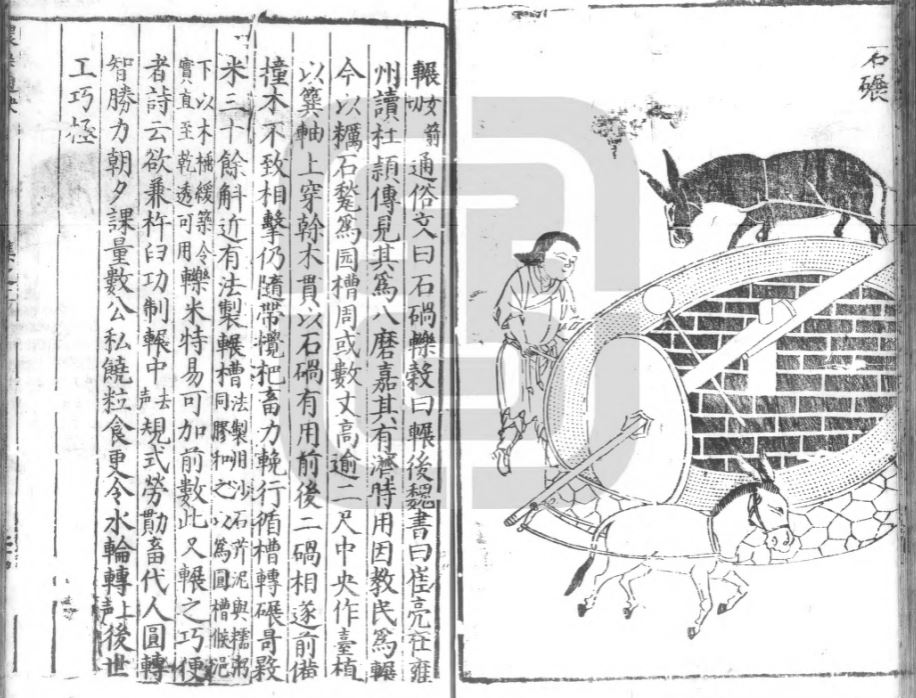 石碾
輾女箭切通俗文曰石碢轢穀曰輾後魏書曰崔亮在雍
州讀杜頴傳見其爲八磨嘉其有濟時用因教民爲輾
今以糲石甃爲圓槽周或數丈高逾二尺中央作臺植
以簨軸上穿榦木貫以石碢有用前後二碢相逐前備
撞木不致相擊仍隨帶攪杷畜力輓行循槽轉碾日可毇
米三十餘斛近有法製輾槽法製用沙石芹泥與糯粥同膠和之以爲圓槽候浥
下以木桶緩築令實直至乾透可用轢米特易可加前數此又輾之巧便
者詩云欲兼杵臼功制輾中去聲規式勞勩畜代人圓轉
智勝力朝夕課量數公私饒粒食更令水輪轉上聲後世
工巧極